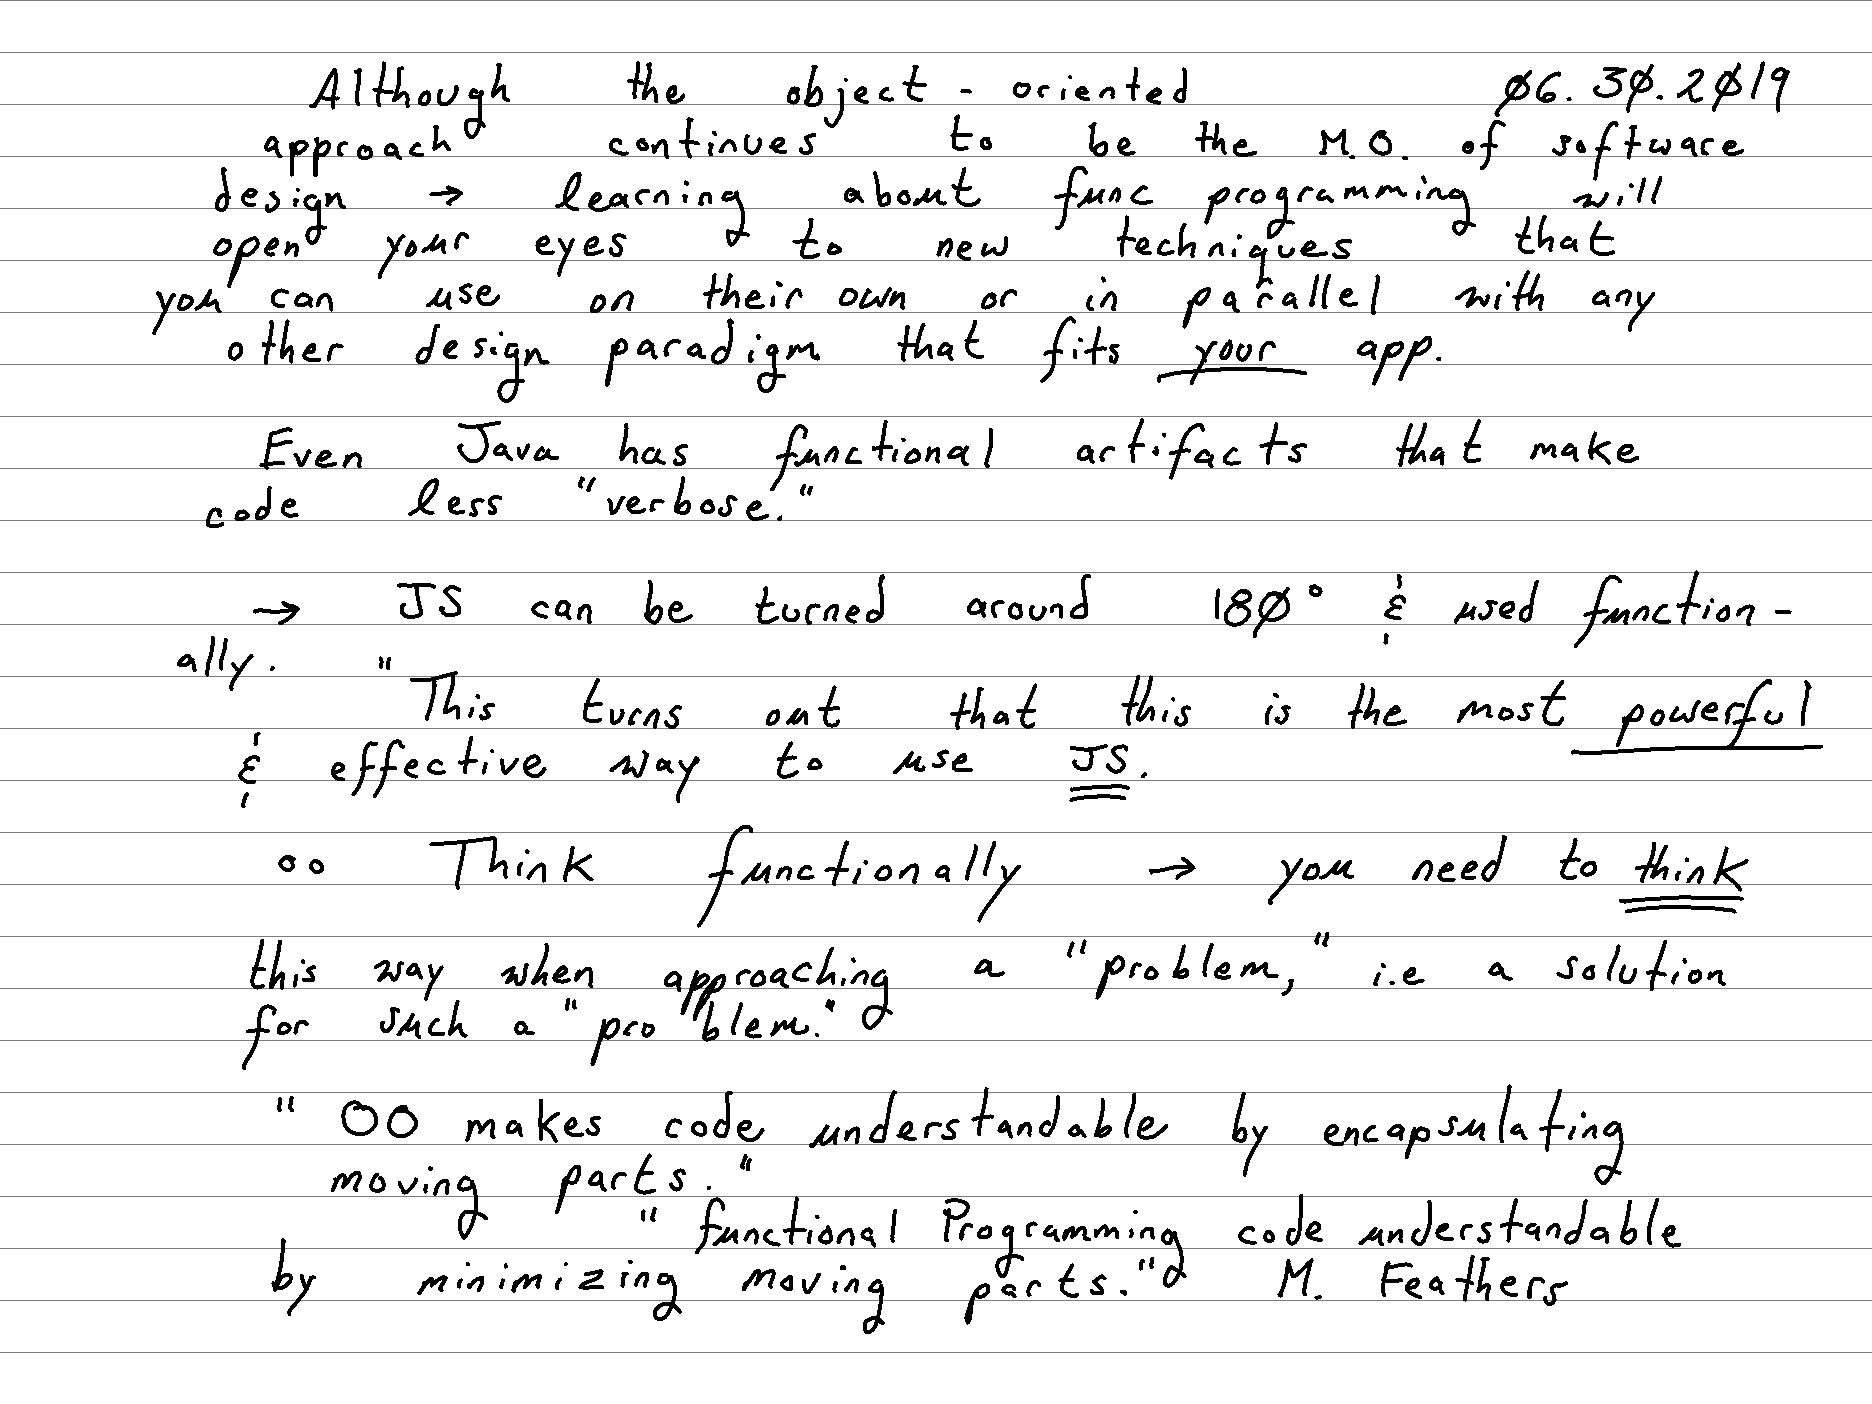 Although the object - oriented 06.30.2019
approach continues to be the M.O. of software
design → learning about func programming will
open your eyes to new techniques that
you can use on their own or in parallel with any
other design paradigm that fits your app.
Even Java has functional artifacts that make
code less "verbose."
→ JS can be turned around 180° & used function-
ally.
"This turns out that this is the most powerful
& effective way to use JS.
oo Think functionally → you need to think
this way when approaching a "problem," i.e a solution
for such a "pro blem."
"OO makes code understandable by encapsulating
moving parts."
"functional Programming code understandable
by minimizing moving parts." M. Feathers